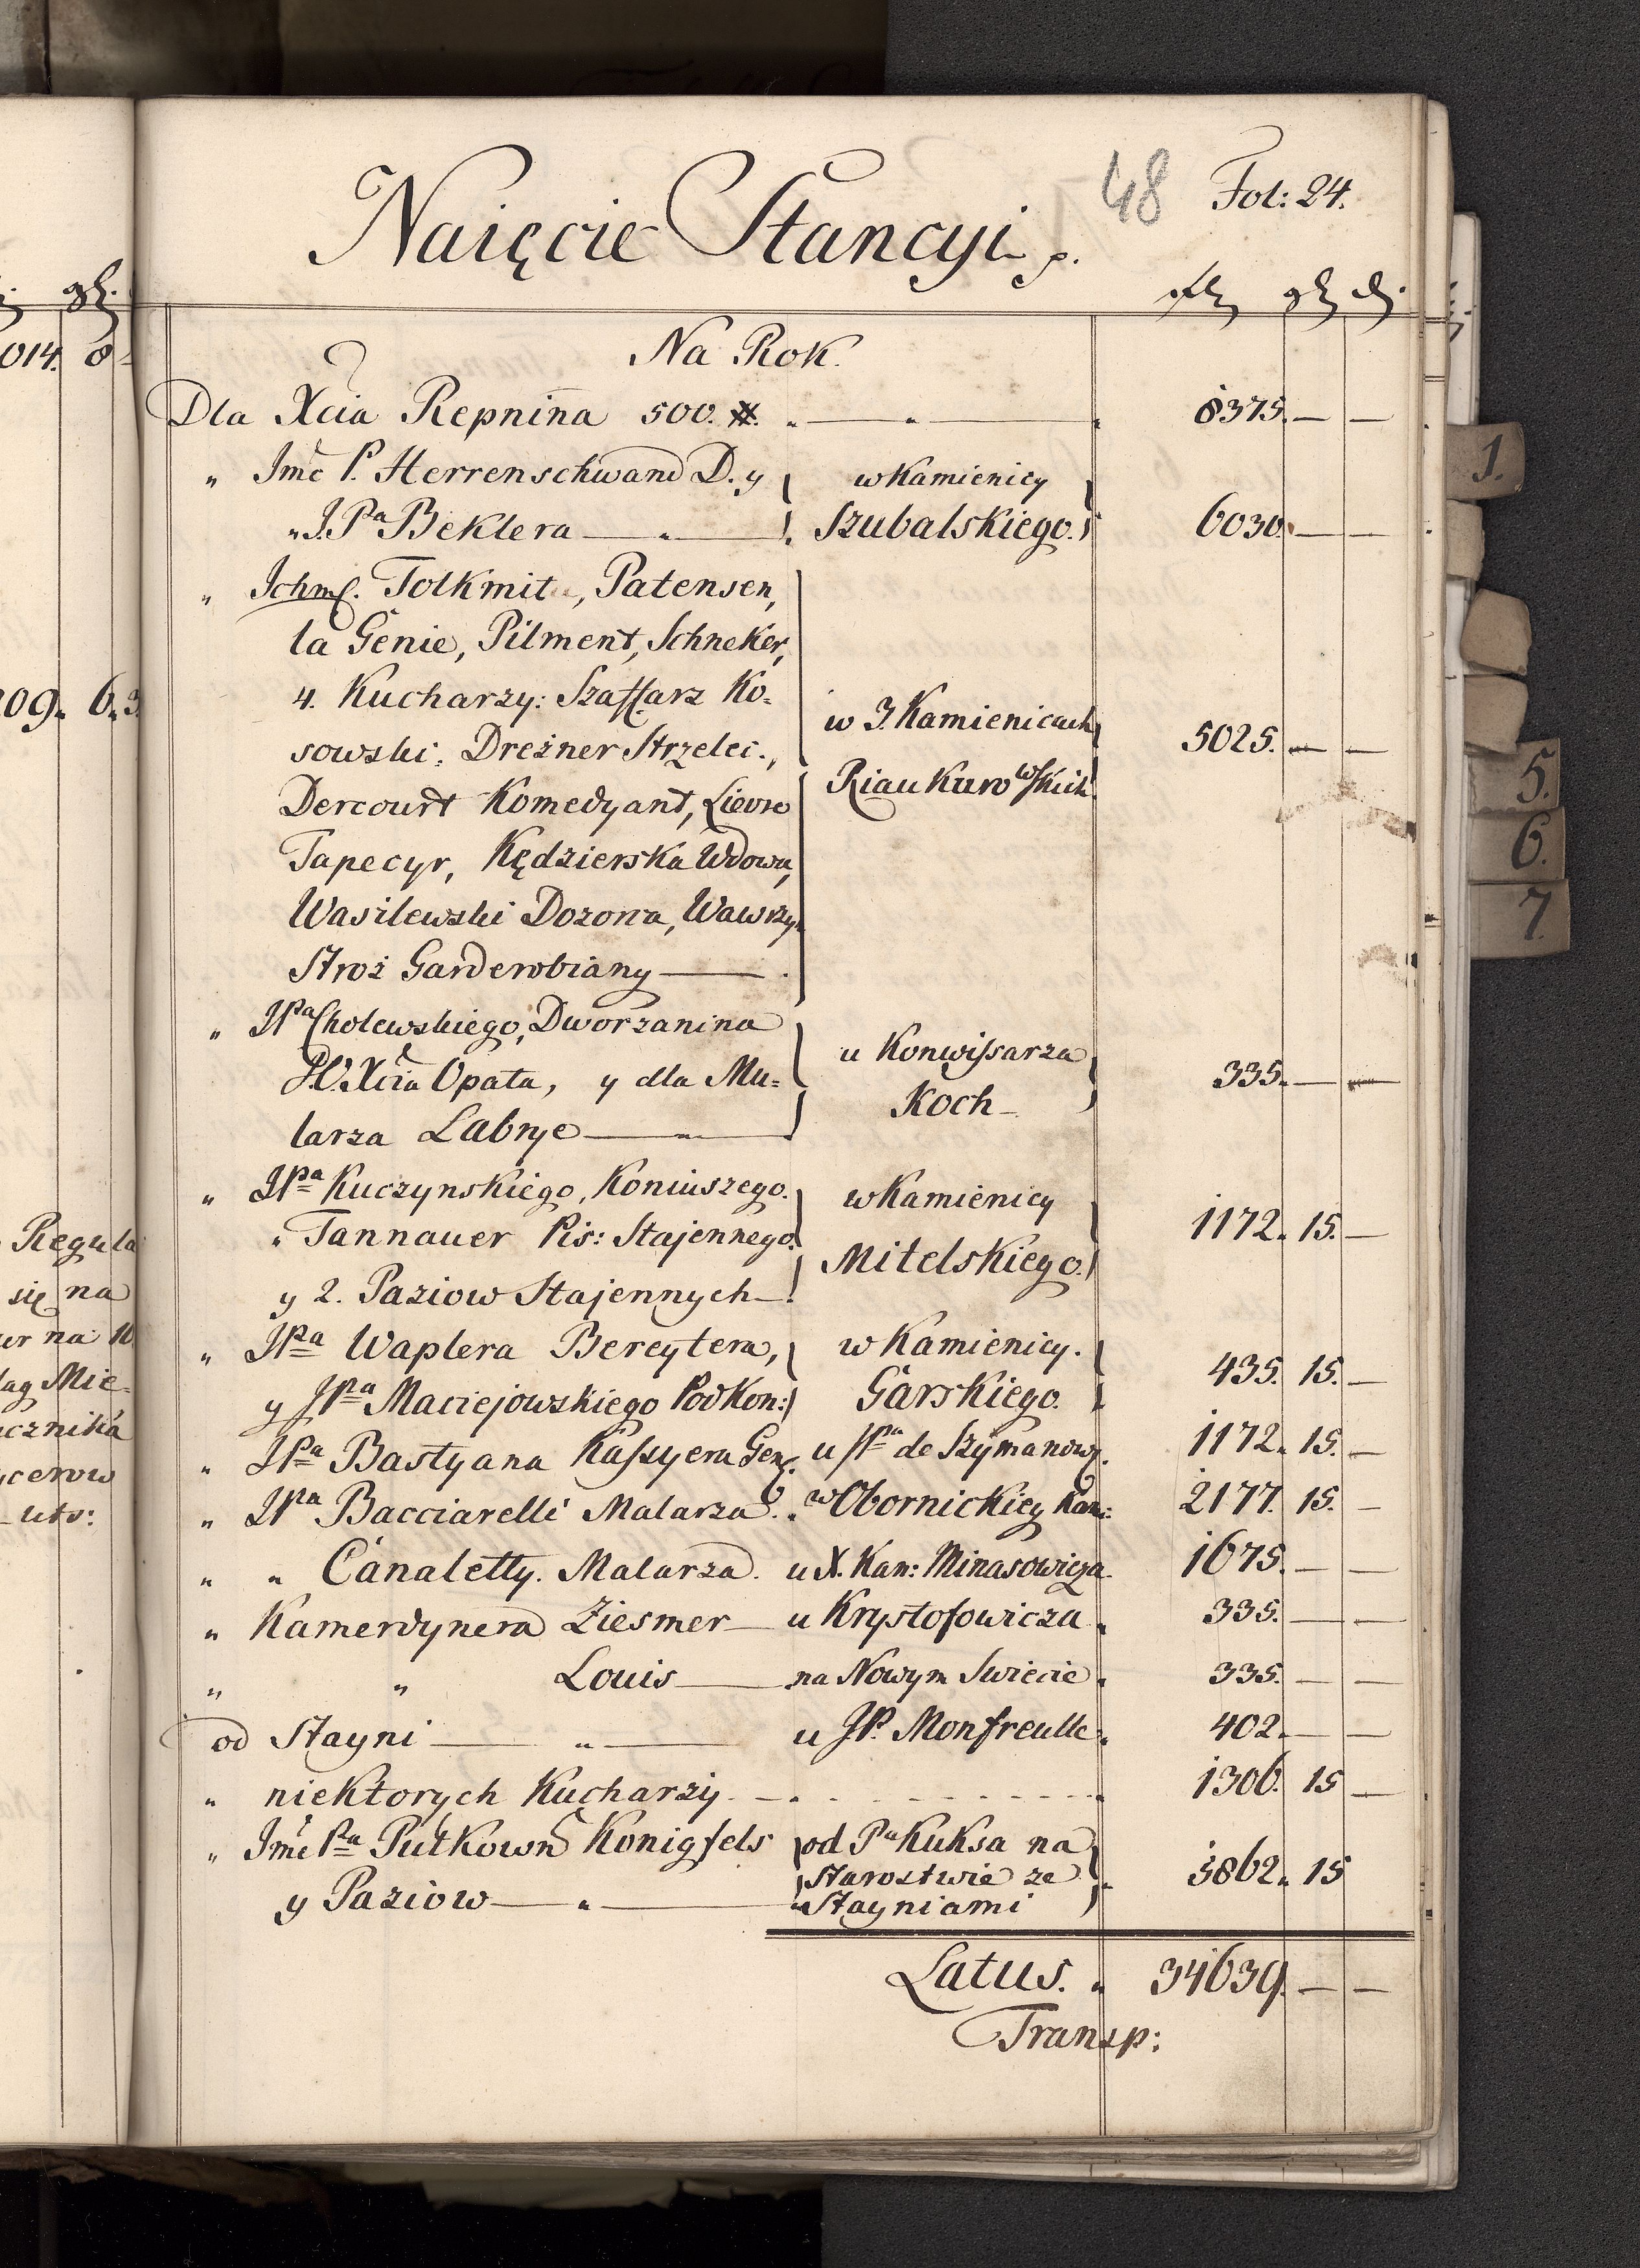 48 Fol: 24.
Naięcie Stancyi p.
Na Rok.
Dla Xcia Repnina 500. #. 8375. — —
" Jmć P. Herrenschwand D. y w Kamienicy
" J. Pa Beklera — " — Szubalskiego. 6030. — —
" Tolkmit, Patensen,
la Genie, Pilment, Schneker,
4. Kucharzy: Szaffarz Ko=
sowski: Dreżner Strzelec., w 3. Kamienicach 5025. — —
Dercourt Komedyant, Lievre
Tapecyr, Kędzierska Wdowa,
Wasilewski Dozorca, Wawrzy.
Stroż Garderobiany —
" JPa Cholewskiego, Dworzanina u Konwissarza
Xcia Opata, y dla Mu= Koch — 335. — —
larza Labrye — " —
" JPa Kuczynskiego, Koniuszego. w Kamienicy
" Tannauer Pis: Stajennego Mitelskiego. 1172. 15. —
y 2. Paziow Stajennych —
" JPa Waplera Bereytera, w Kamienicy.
y JPa Maciejowskiego PodKon: Garskiego. 435. 15. —
" JPa Bastyana Kassyera Gen. u JPa de Szymanow. 1172. 15. —
" JPa Bacciarelli Malarza. w Obornickiey Kam: 2177. 15. —
" " Canaletty. Malarza. u X. Kan: Minasowicza. 1675. — —
" Kamerdynera Ziesmer — u Krystofowicza. 335. — —
" " Louis — na Nowym Swiecie. 335. — —
od Stayni — " — u JP. Monfreulle. 402. — —
" niektorych Kucharzy. — 1306. 15 —
" Jmć Pa Putkown Konigfels od Pa Kuksa na
y Paziow — " — Starostwie ze 3862. 15
Stayniami
Latus. 34639. — —
Transp:
014. 8 -
09. 6. 3
Regula
się na
na 10
Mie=
1.
5.
6.
7.